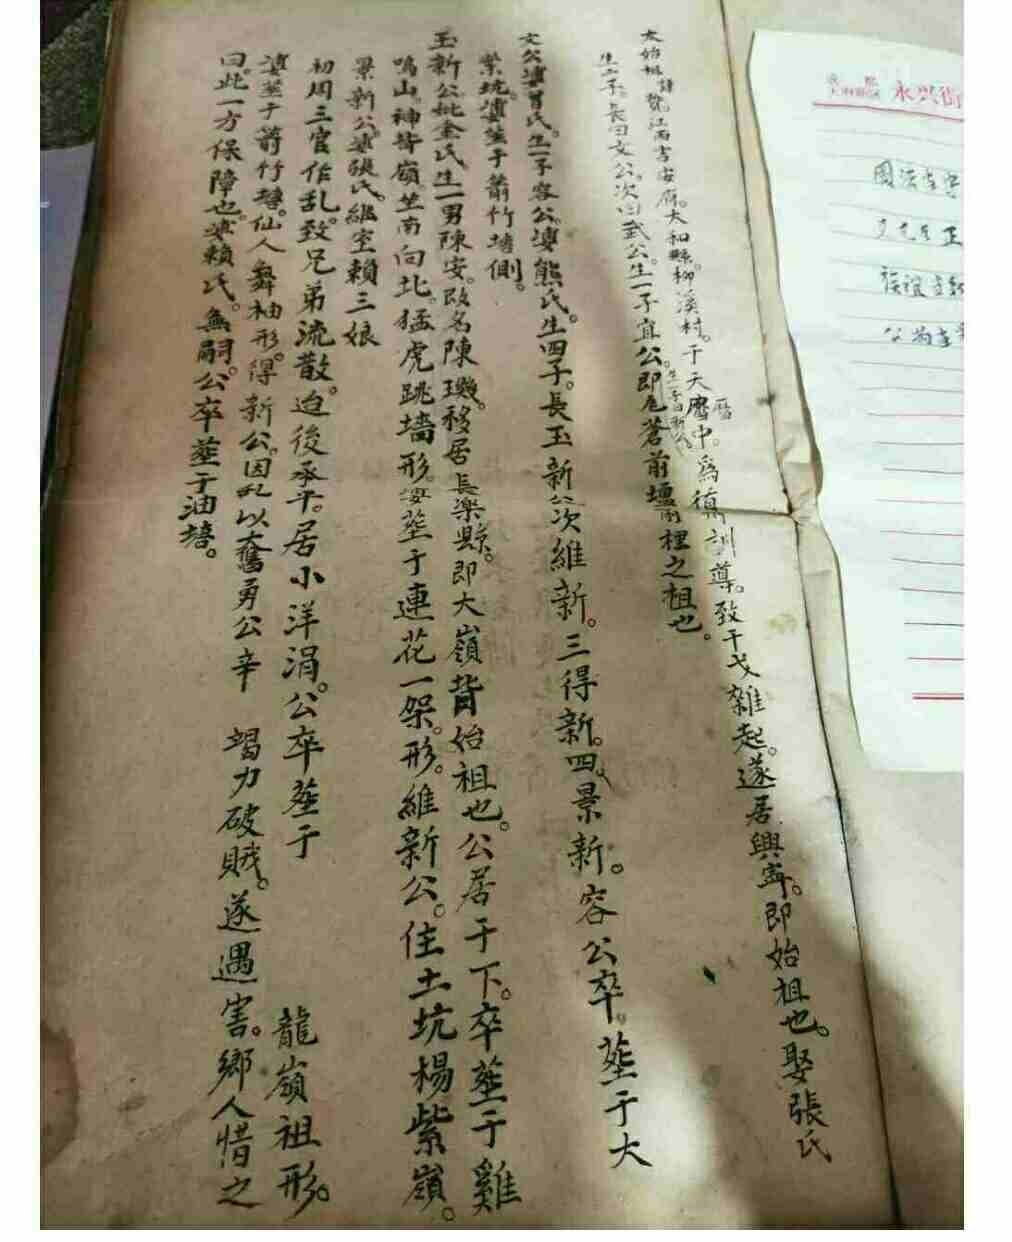 太始祖諱贊。江西吉安府。太和縣。柳溪村。于天曆中。為循州訓導。致干戈雜起。遂居興寧。即始祖也。娶張氏
曆
生二子。長曰文公。次曰武公。生一子宜公。即苍前壇裡之祖也。
文公婆曾氏。生一子容公。婆熊氏。生四子。長玉新公。次維新。三得新。四景新。容公卒。塟于大
紫坑。婆塟于蕭竹墻側。
玉新公。妣金氏。生一男陳安。改名陳璣。移居長樂縣。即大嶺背始祖也。公居于下。卒塟于雞
鳴山。神背嶺。坐南向北。猛虎跳墻形。婆塟于連花一架形。維新公。住土坑楊紫嶺。
景新公。婆張氏。繼室賴三娘
初周三官作乱。致兄弟流散。迨後承平。居小洋涓。公卒塟于 龍嶺祖形。
婆塟于箭竹塘。仙人舞袖形。得新公。因乱以奮勇公辛 竭力破賊。遂遇害。鄉人惜之
曰。此一方保障也。婆賴氏。無嗣。公卒塟于油塘。
永兴街